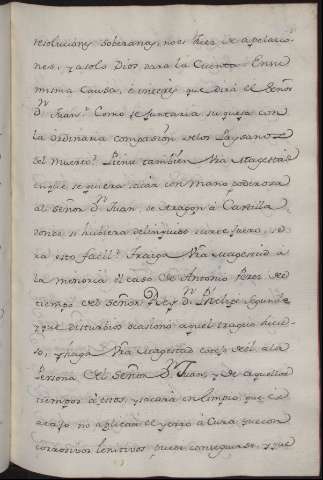 resoluciones soberanas, no es Juez de apelacio-
nes, y a solo Dios dara la Cuenta. En me
misma Causa, è interès que dirà el Señor
D.n Juan? Como se juntaria su quexa con
la ordinaria compasión de los Paysanos
del Muerto? Pienº también Vra Magestad
en que se quiera sacar con mano poderosa
al Señor D.n Juan, de Aragon à Castilla,
donde si hubiera delinquido contra fuero, se-
ra esto facil? Traiga Vra Magestad à
la memoria el caso de Antonio Perez del
tiempo del Señor Rey D.n Phelipe Segundo
y que disturbios ocasionò aquel tragico suce-
so, y haga Vra Magestad cotejo de el a la
Persona del Señor D.n Juan, y de aquellos
tiempos à estos, y sacarà en limpio, que el
atajo no aplican el yerro à Cura, que con
corrosivos lenitivos puede conseguirse, y que